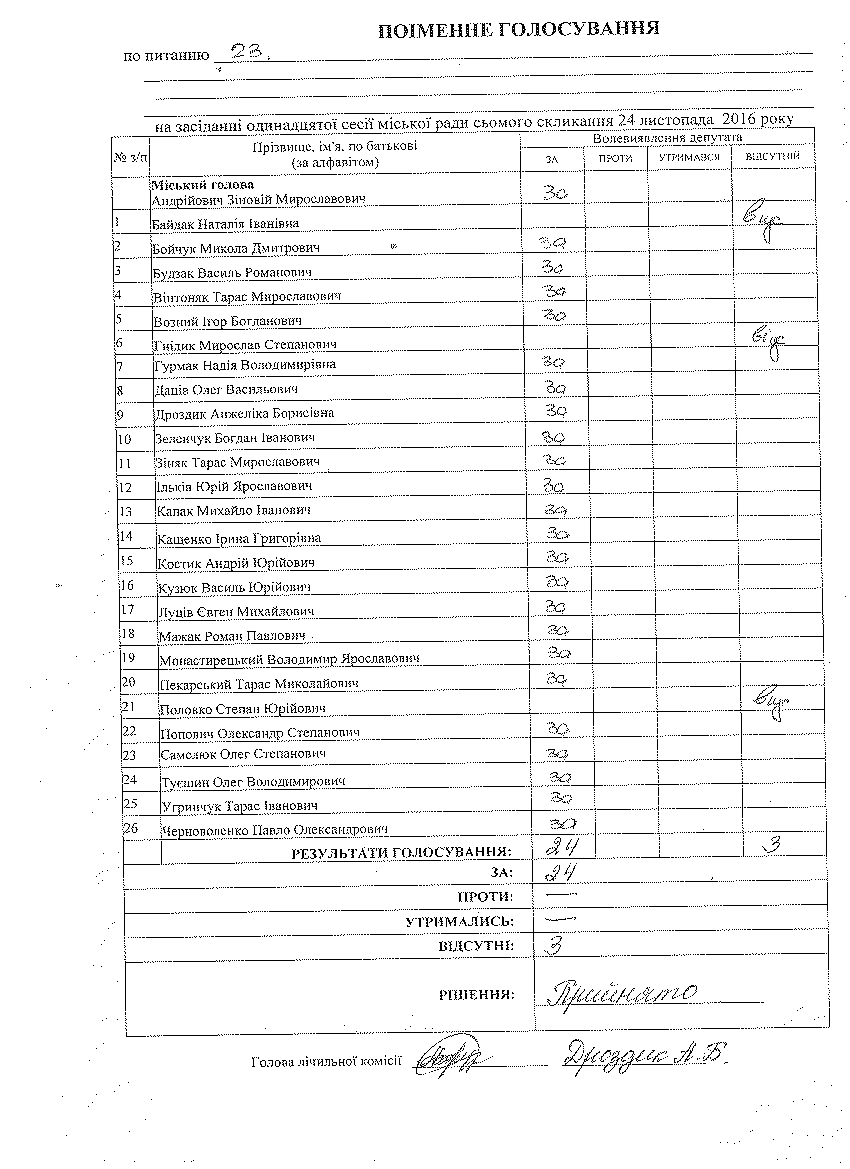 ПОІМЕННЕ ГОЛОСУВАННЯ
по питанню 23.
на засіданні одинадцятої сесії міської ради сьомого скликання 24 листопада 2016 року
№ з/п Прізвище, ім'я, по батькові (за алфавітом) Волевиявлення депутата
ЗА ПРОТИ УТРИМАВСЯ ВІДСУТНІЙ
Міський голова
Андрійович Зіновій Мирославович За
1 Байдак Наталія Іванівна відс
2 Бойчук Микола Дмитрович За
3 Будзак Василь Романович За
4 Вінтоняк Тарас Мирославович За
5 Возний Ігор Богданович За
6 Гнідик Мирослав Степанович відс
7 Гурмак Надія Володимирівна За
8 Даців Олег Васильович За
9 Дроздик Анжеліка Борисівна За
10 Зеленчук Богдан Іванович За
11 Зіняк Тарас Мирославович За
12 Ільків Юрій Ярославович За
13 Капак Михайло Іванович За
14 Кащенко Ірина Григорівна За
15 Костик Андрій Юрійович За
16 Кузюк Василь Юрійович За
17 Луців Євген Михайлович За
18 Мажак Роман Павлович За
19 Монастирецький Володимир Ярославович За
20 Пекарський Тарас Миколайович За
21 Половко Степан Юрійович відс
22 Попович Олександр Степанович За
23 Самелюк Олег Степанович За
24 Туєшин Олег Володимирович За
25 Угринчук Тарас Іванович За
26 Черноволенко Павло Олександрович За
РЕЗУЛЬТАТИ ГОЛОСУВАННЯ: 24 3
ЗА: 24
ПРОТИ: —
УТРИМАЛИСЬ: —
ВІДСУТНІ: 3
РІШЕННЯ: Прийнято
Голова лічильної комісії Дроздик А.Б.